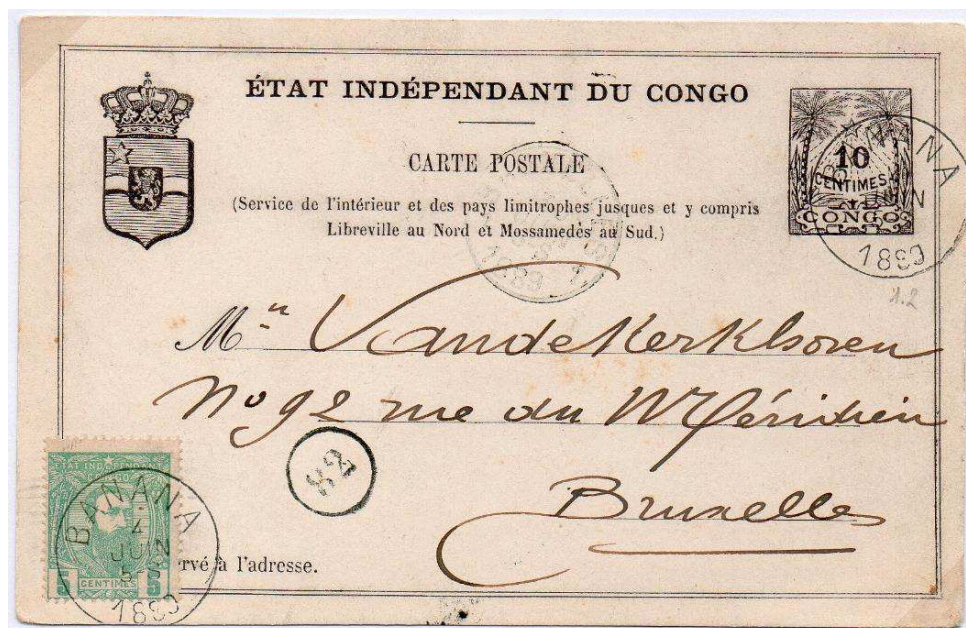 ÉTAT INDÉPENDANT DU CONGO
CARTE POSTALE
(Service de l'intérieur et des pays limitrophes jusques et y compris
Libreville au Nord et Mossamedès au Sud.)
10
CENTIMES
CONGO
BANANA
JUIN
1889
1889 7.
1.2
Mr Vandekerkhoven
No 92 rue du Méridien
Bruxelles
82
ETAT INDEPENDANT
5 CENTIMES 5
BANANA
4
JUIN
5-S
1889
rvé à l'adresse.